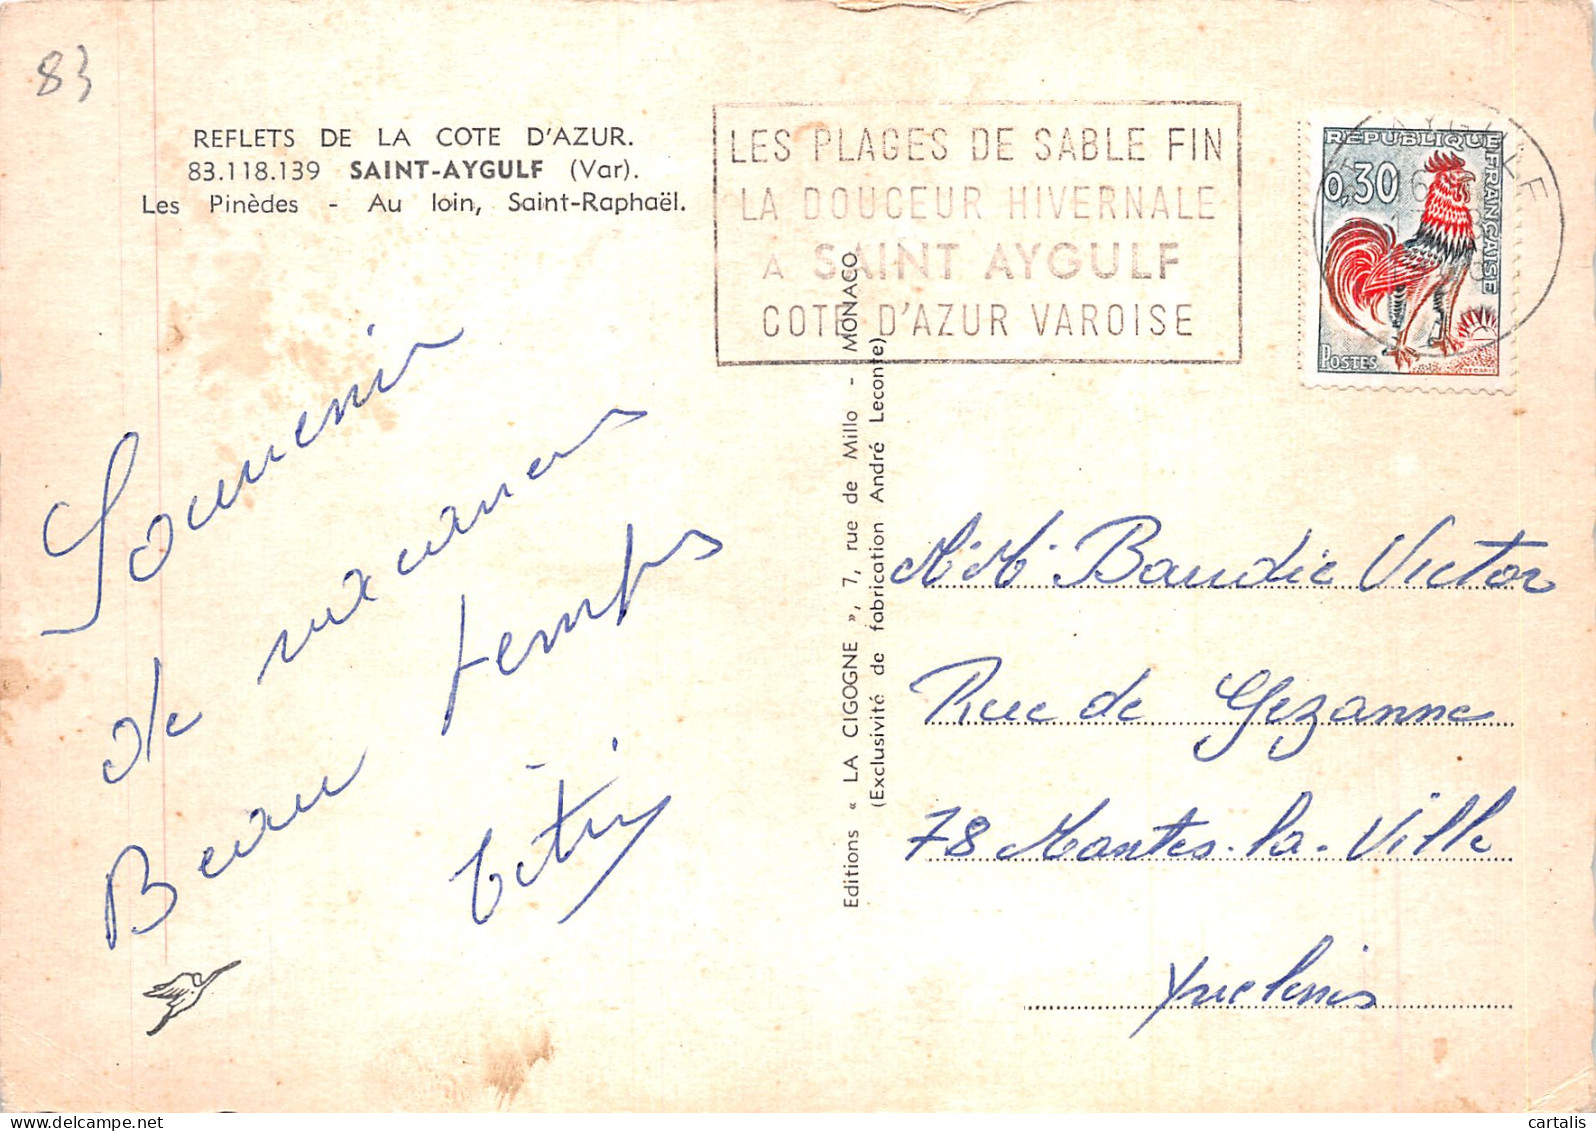 83
REFLETS DE LA COTE D'AZUR.
83.118.139 SAINT-AYGULF (Var).
Les Pinèdes - Au loin, Saint-Raphaël.
LES PLAGES DE SABLE FIN
LA DOUCEUR HIVERNALE
A SAINT AYGULF
COTE D'AZUR VAROISE
AYGULF
REPUBLIQUE FRANÇAISE
0,30
POSTES
Souvenir
de vacances
Beau temps
Titin
Editions « LA CIGOGNE », 7, rue de Millo - MONACO
(Exclusivité de fabrication André Leconte)
M. M. Baudic Victor
Rue de Gezanne
78 Mantes-la-Ville
Yvelines
www.delcampe.net
cartalis